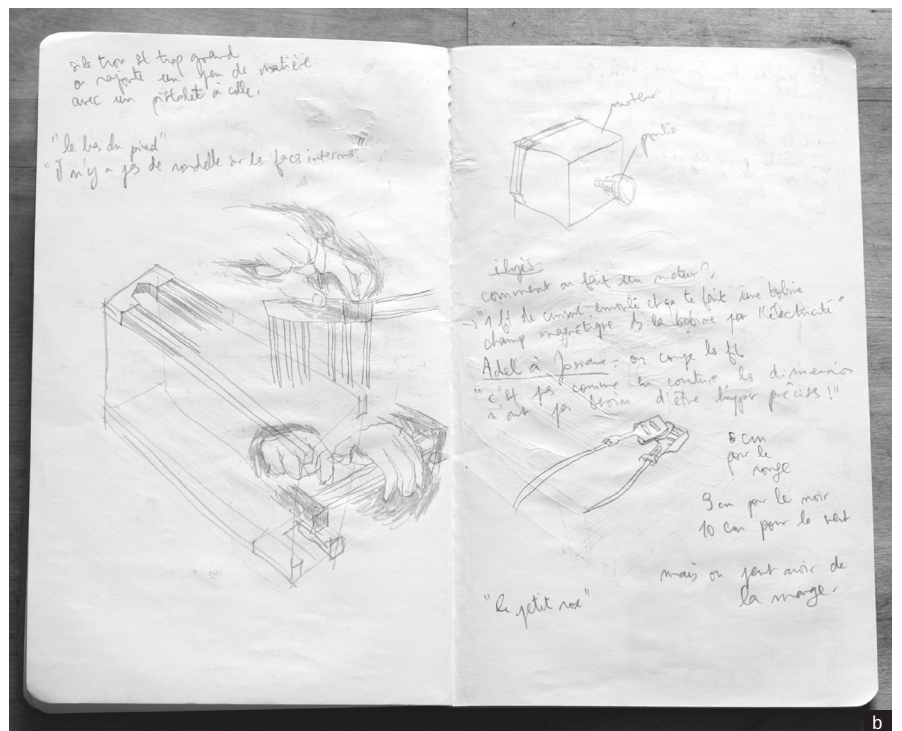 si le trou est trop grand
on rajoute un peu de matière
avec un pistolet à colle.
"le bas du pied"
"il n'y a pas de rondelle sur les faces internes"
moteur
comment on fait un moteur?
"1 fil de cuivre enroulé et ça te fait une bobine
champ magnétique ds la bobine par l'électricité"
Adel à Josiane: on coupe les fils
"c'est pas comme la couture les dimensions
n'ont pas besoin d'être hyper précises!!"
5 cm
pour le
rouge
9 cm par le noir
10 cm pour le vert
mais on peut avoir de
la marge.
"le petit"
b